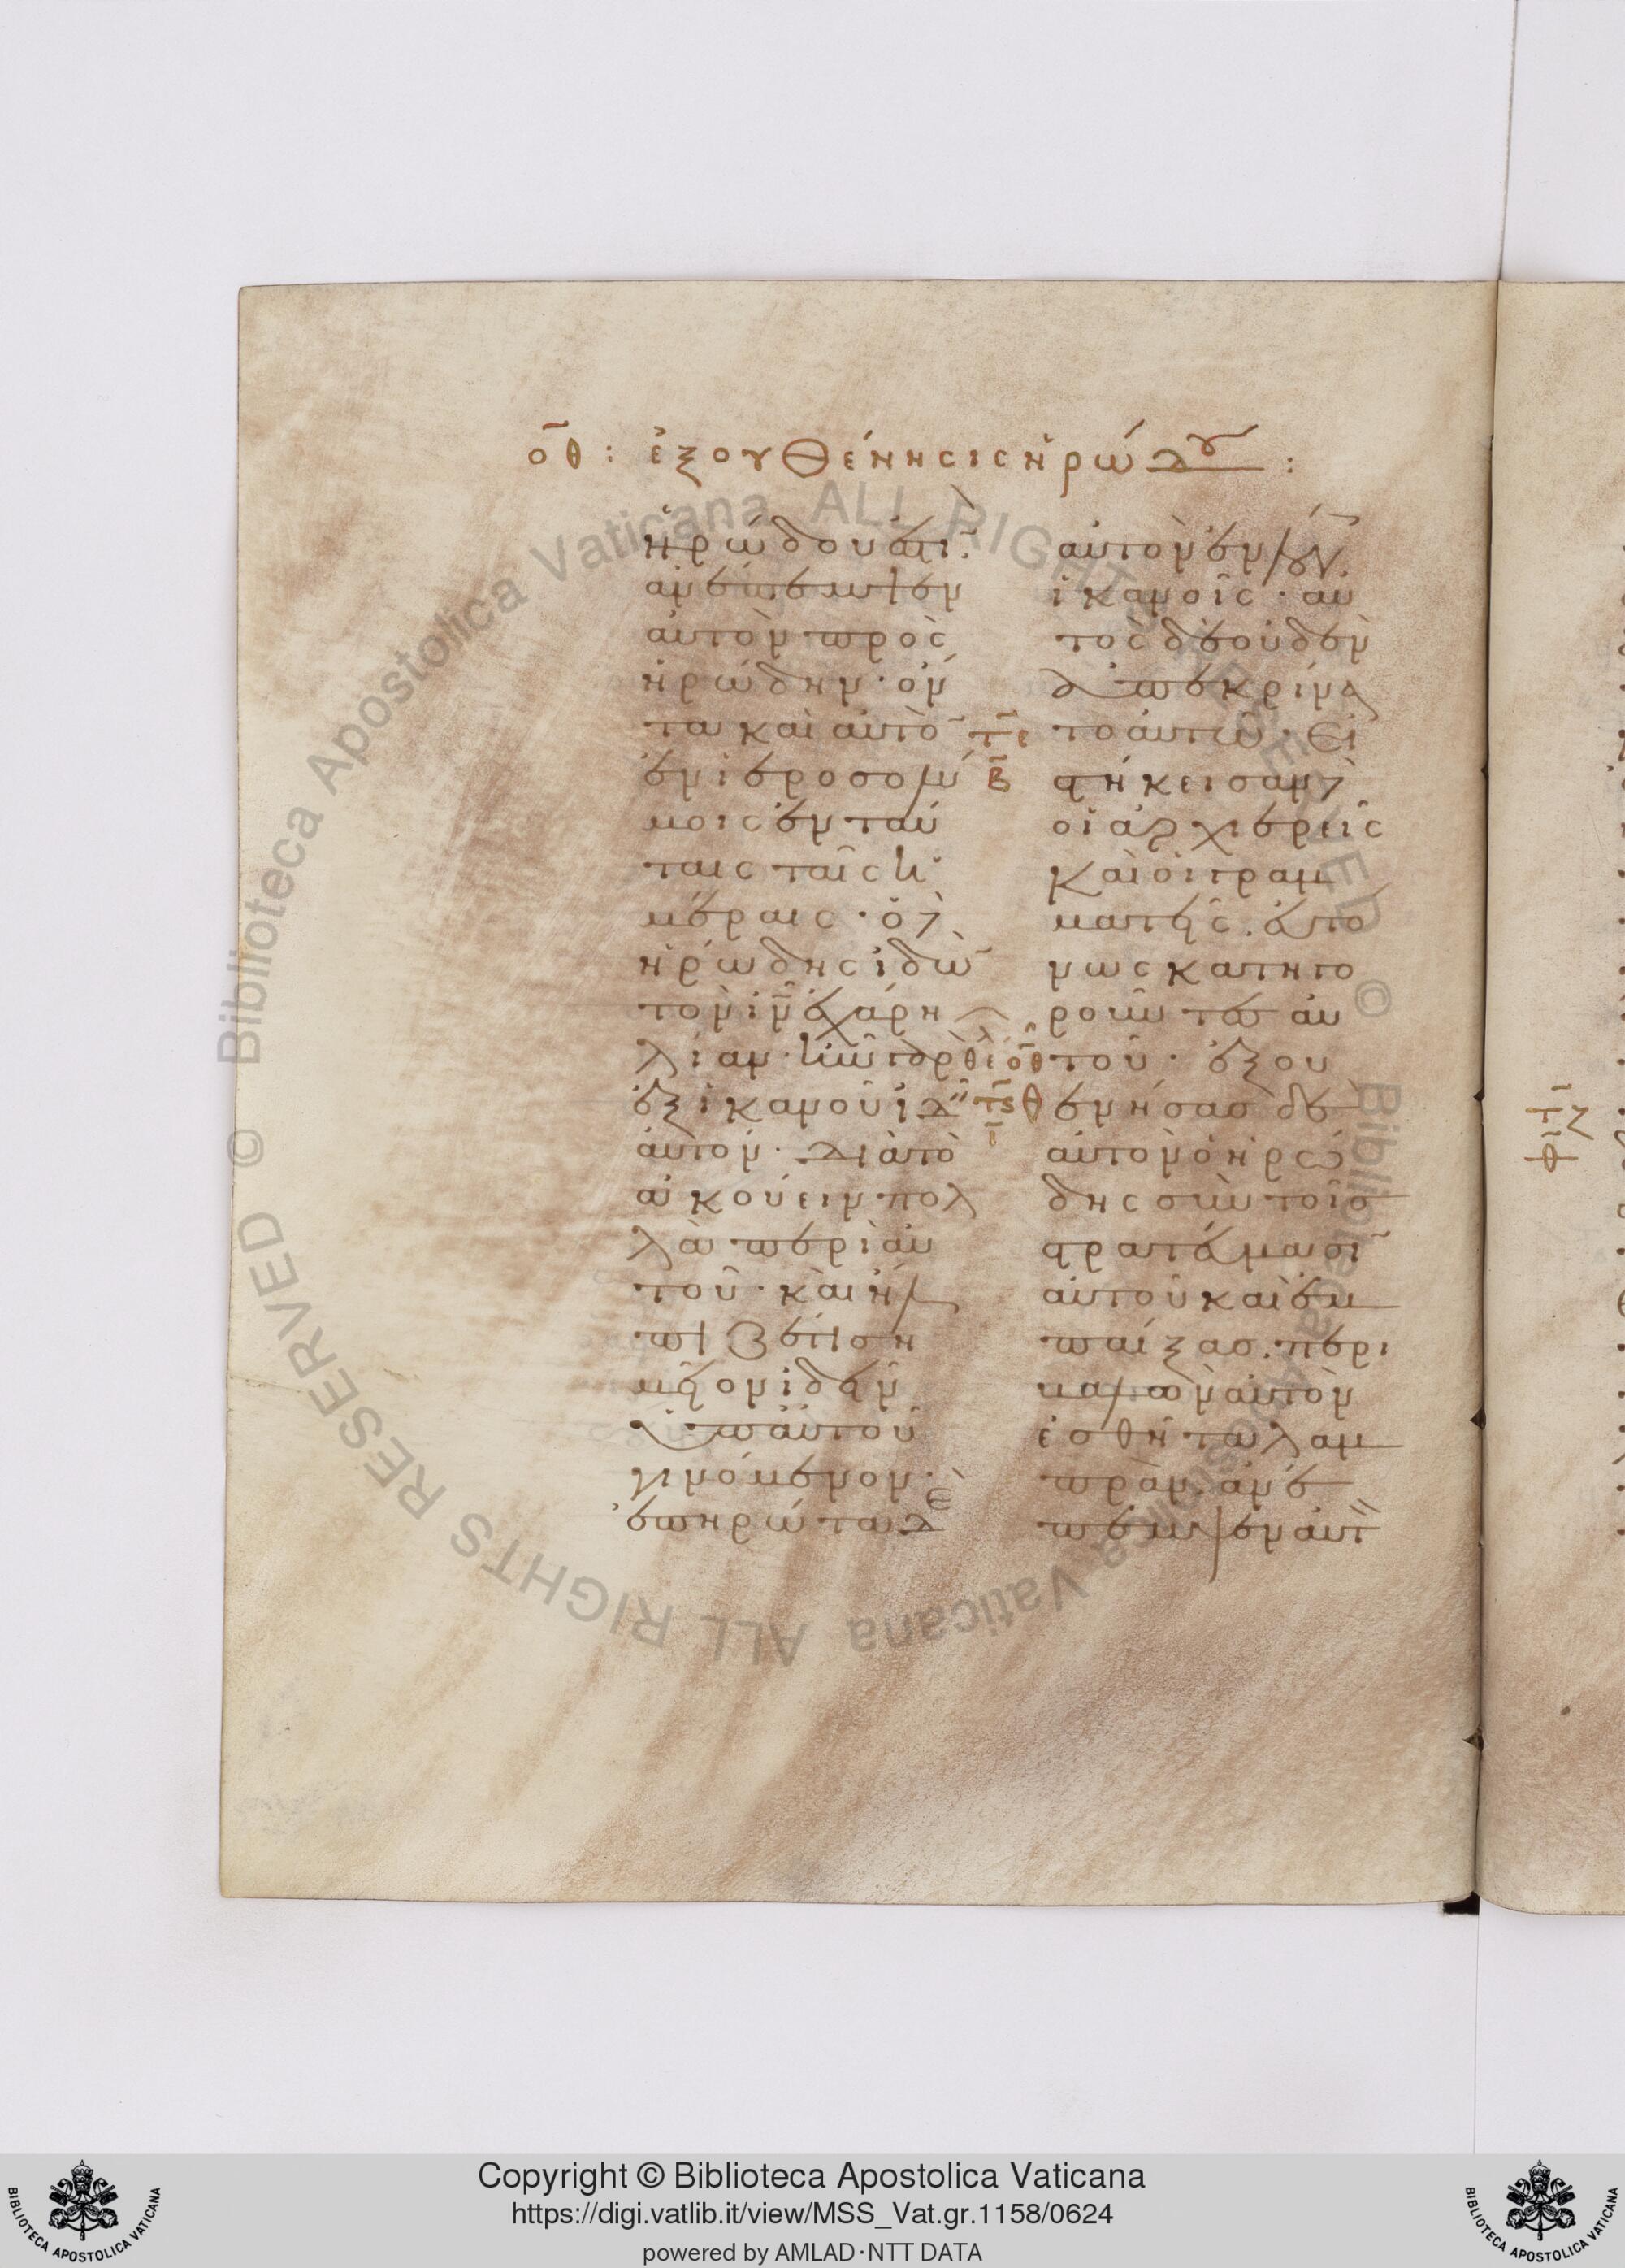 οθ : ἐξουθένησις ἡρώδου :
ἡρώδου ἐστί
ἀνέπεμψεν
αὐτὸν πρὸς
ἡρώδην · ὄν
τα καὶ αὐτὸ
ἐν ἱεροσολύ
μοις ἐν ταύ
ταις ταῖς ἡ
μέραις · ὁ δὲ
ἡρώδης ἰδὼ
τὸν ιν ἐχάρη
λίαν · ἦν γὰρ θέ
ἐξ ἱκανοῦ ἰδ
αὐτόν · διὰ τὸ
ἀκούειν πολ
λὰ περὶ αὐ
τοῦ · καὶ ἤλ
πιζέ τι ση
μεῖον ἰδεῖν
ὑπ αὐτοῦ
γινόμενον ·
ἐπηρώτα δὲ
αὐτὸν ἐν λόγ
ἱκανοῖς · αὐ
τὸς δὲ οὐδὲν
ἀπεκρίνα
το αὐτῶ · Εἱ
στήκεισαν δὲ
οἱ ἀρχιερεῖς
καὶ οἱ γραμ
ματεῖς · εὐτό
νως κατηγο
ροῦντες αὐ
τοῦ · ἐξου
θενήσας δὲ
αὐτὸν ὁ ἡρώ
δης σὺν τοῖς
στρατεύμασι
αὐτοῦ καὶ ἐμ
παίξας · περι
βαλὼν αὐτὸν
ἐσθῆτα λαμ
πρὰν · ἀνέ
πεμψεν αὐτ
τε
β
οθ
τς
ι
Copyright © Biblioteca Apostolica Vaticana
https://digi.vatlib.it/view/MSS_Vat.gr.1158/0624
powered by AMLAD·NTT DATA
BIBLIOTECA APOSTOLICA VATICANA
BIBLIOTECA APOSTOLICA VATICANA
© Biblioteca Apostolica Vaticana ALL RIGHTS RESERVED © Biblioteca Apostolica Vaticana ALL RIGHTS RESERVED